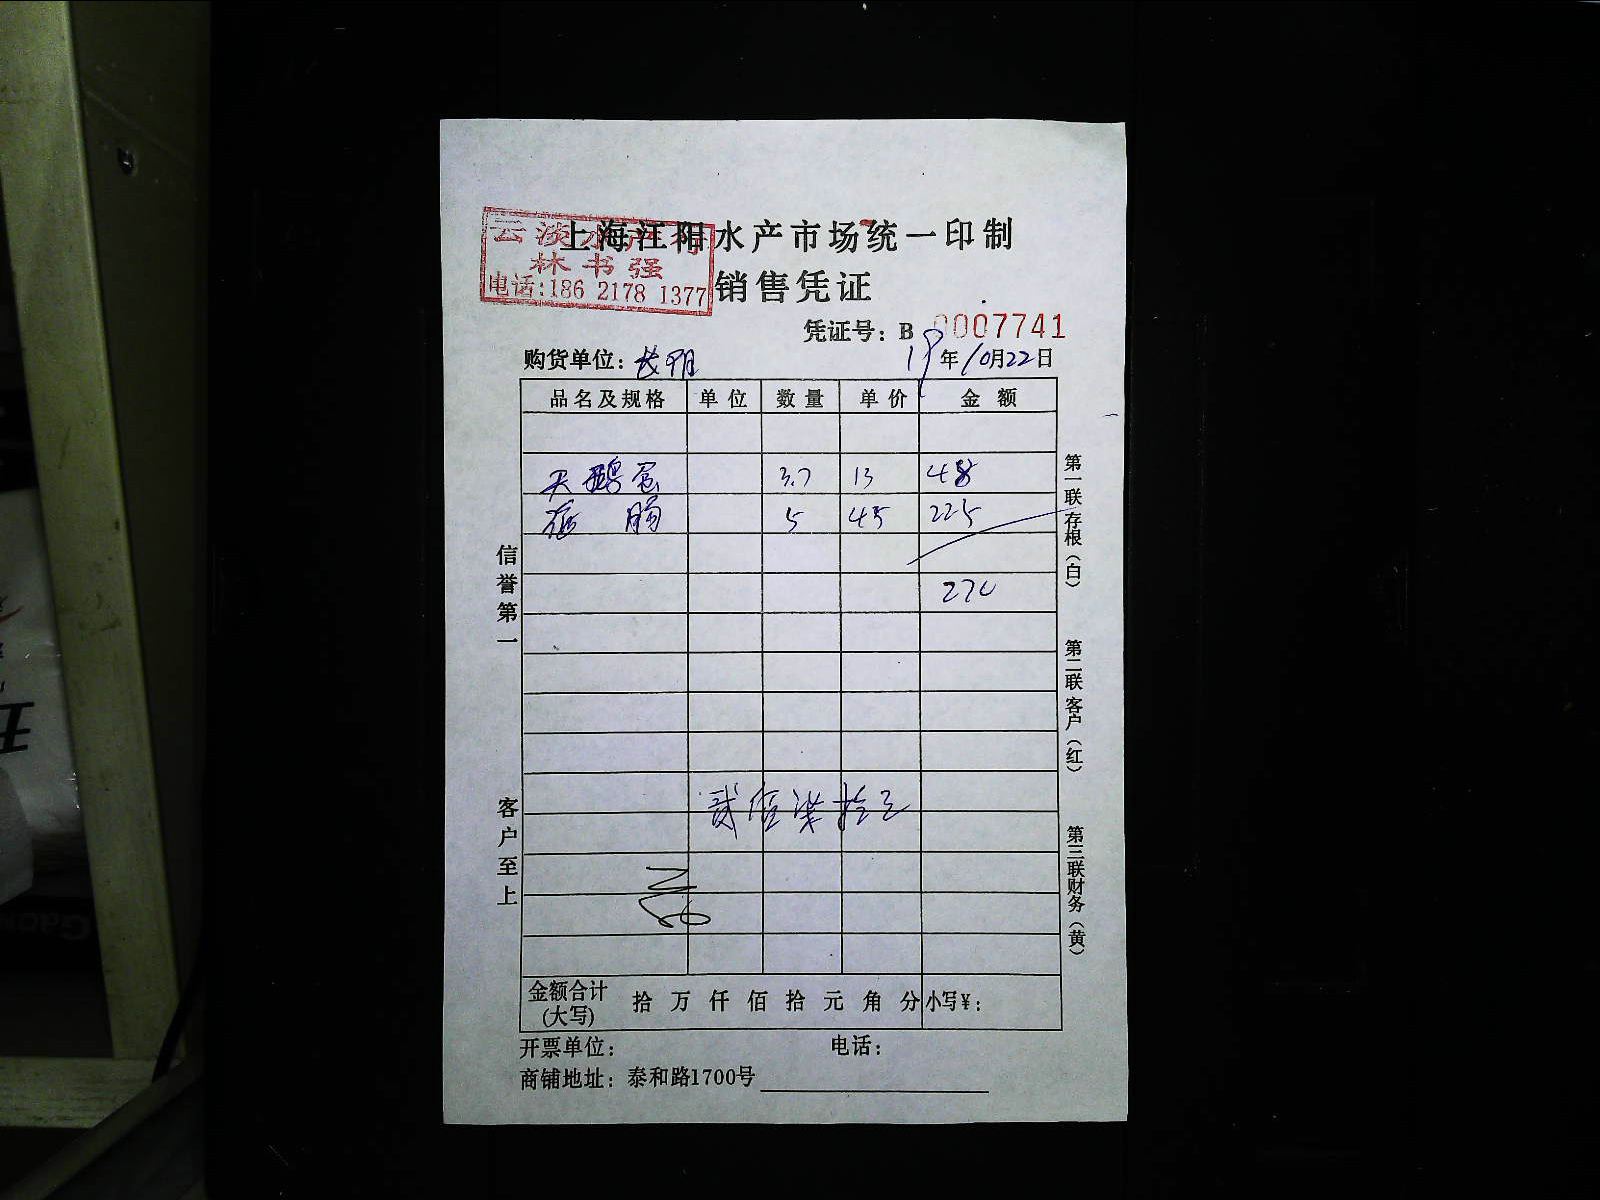 上海江阳水产市场统一印制
云淡水产行
林书强
电话:186 2178 1377
销售凭证
凭证号: B 0007741
购货单位: 19年10月22日
品名及规格 单位 数量 单价 金额
天鹅蛋 3.7 13 48
5 45 225
270
贰佰柒拾
金额合计(大写) 拾 万 仟 佰 拾 元 角 分 小写¥:
开票单位: 电话:
商铺地址: 泰和路1700号
信誉第一
客户至上
第一联存根(白)
第二联客户(红)
第三联财务(黄)